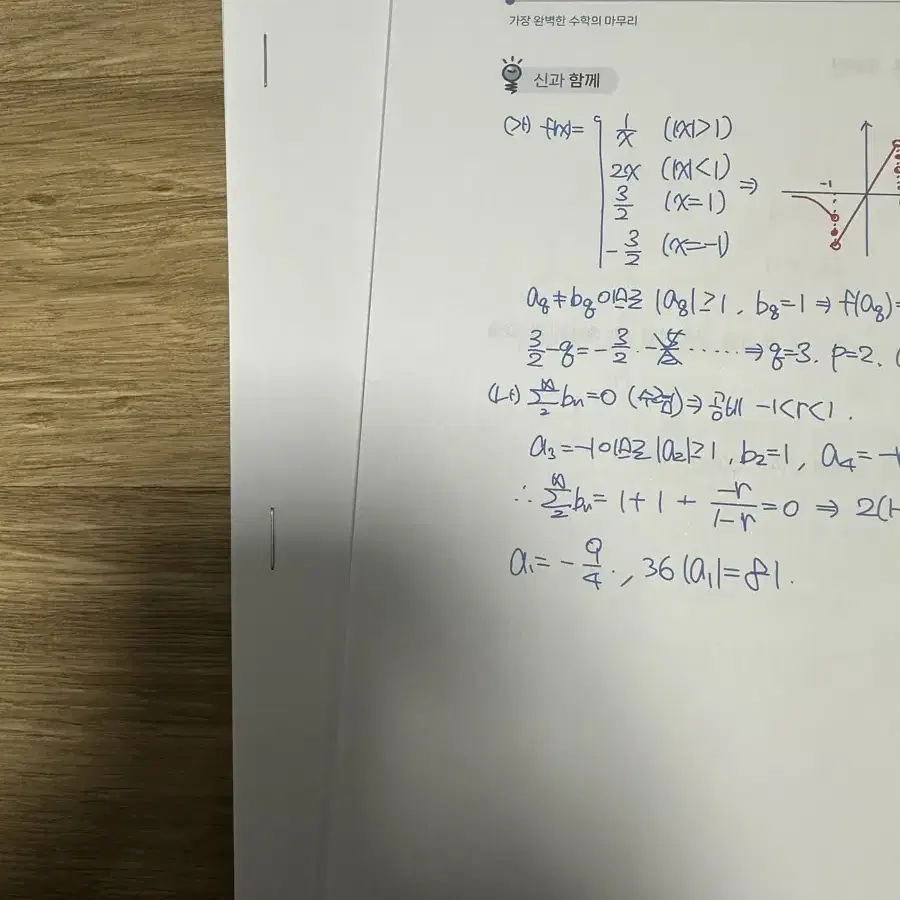 가장 완벽한 수학의 마무리
신과 함께
(가) f(x)= { 1/x (|x|>1)
2x (|x|<1) ⇒
3/2 (x=1)
-3/2 (x=-1)
-1
a₈≠b₈ 이므로 |a₈|≥1, b₈=1 ⇒ f(a₈)=
3/2-q=-3/2. ...... ⇒ q=3. p=2.
(나) ∑bₙ=0 (수렴) ⇒ 공비 -1<r<1.
a₃=-1 이므로 |a₂|≥1, b₂=1, a₄=-r
∴ ∑bₙ= 1+1+ -r/1-r =0 ⇒ 2(1-
a₁= -9/4., 36|a₁|=81.